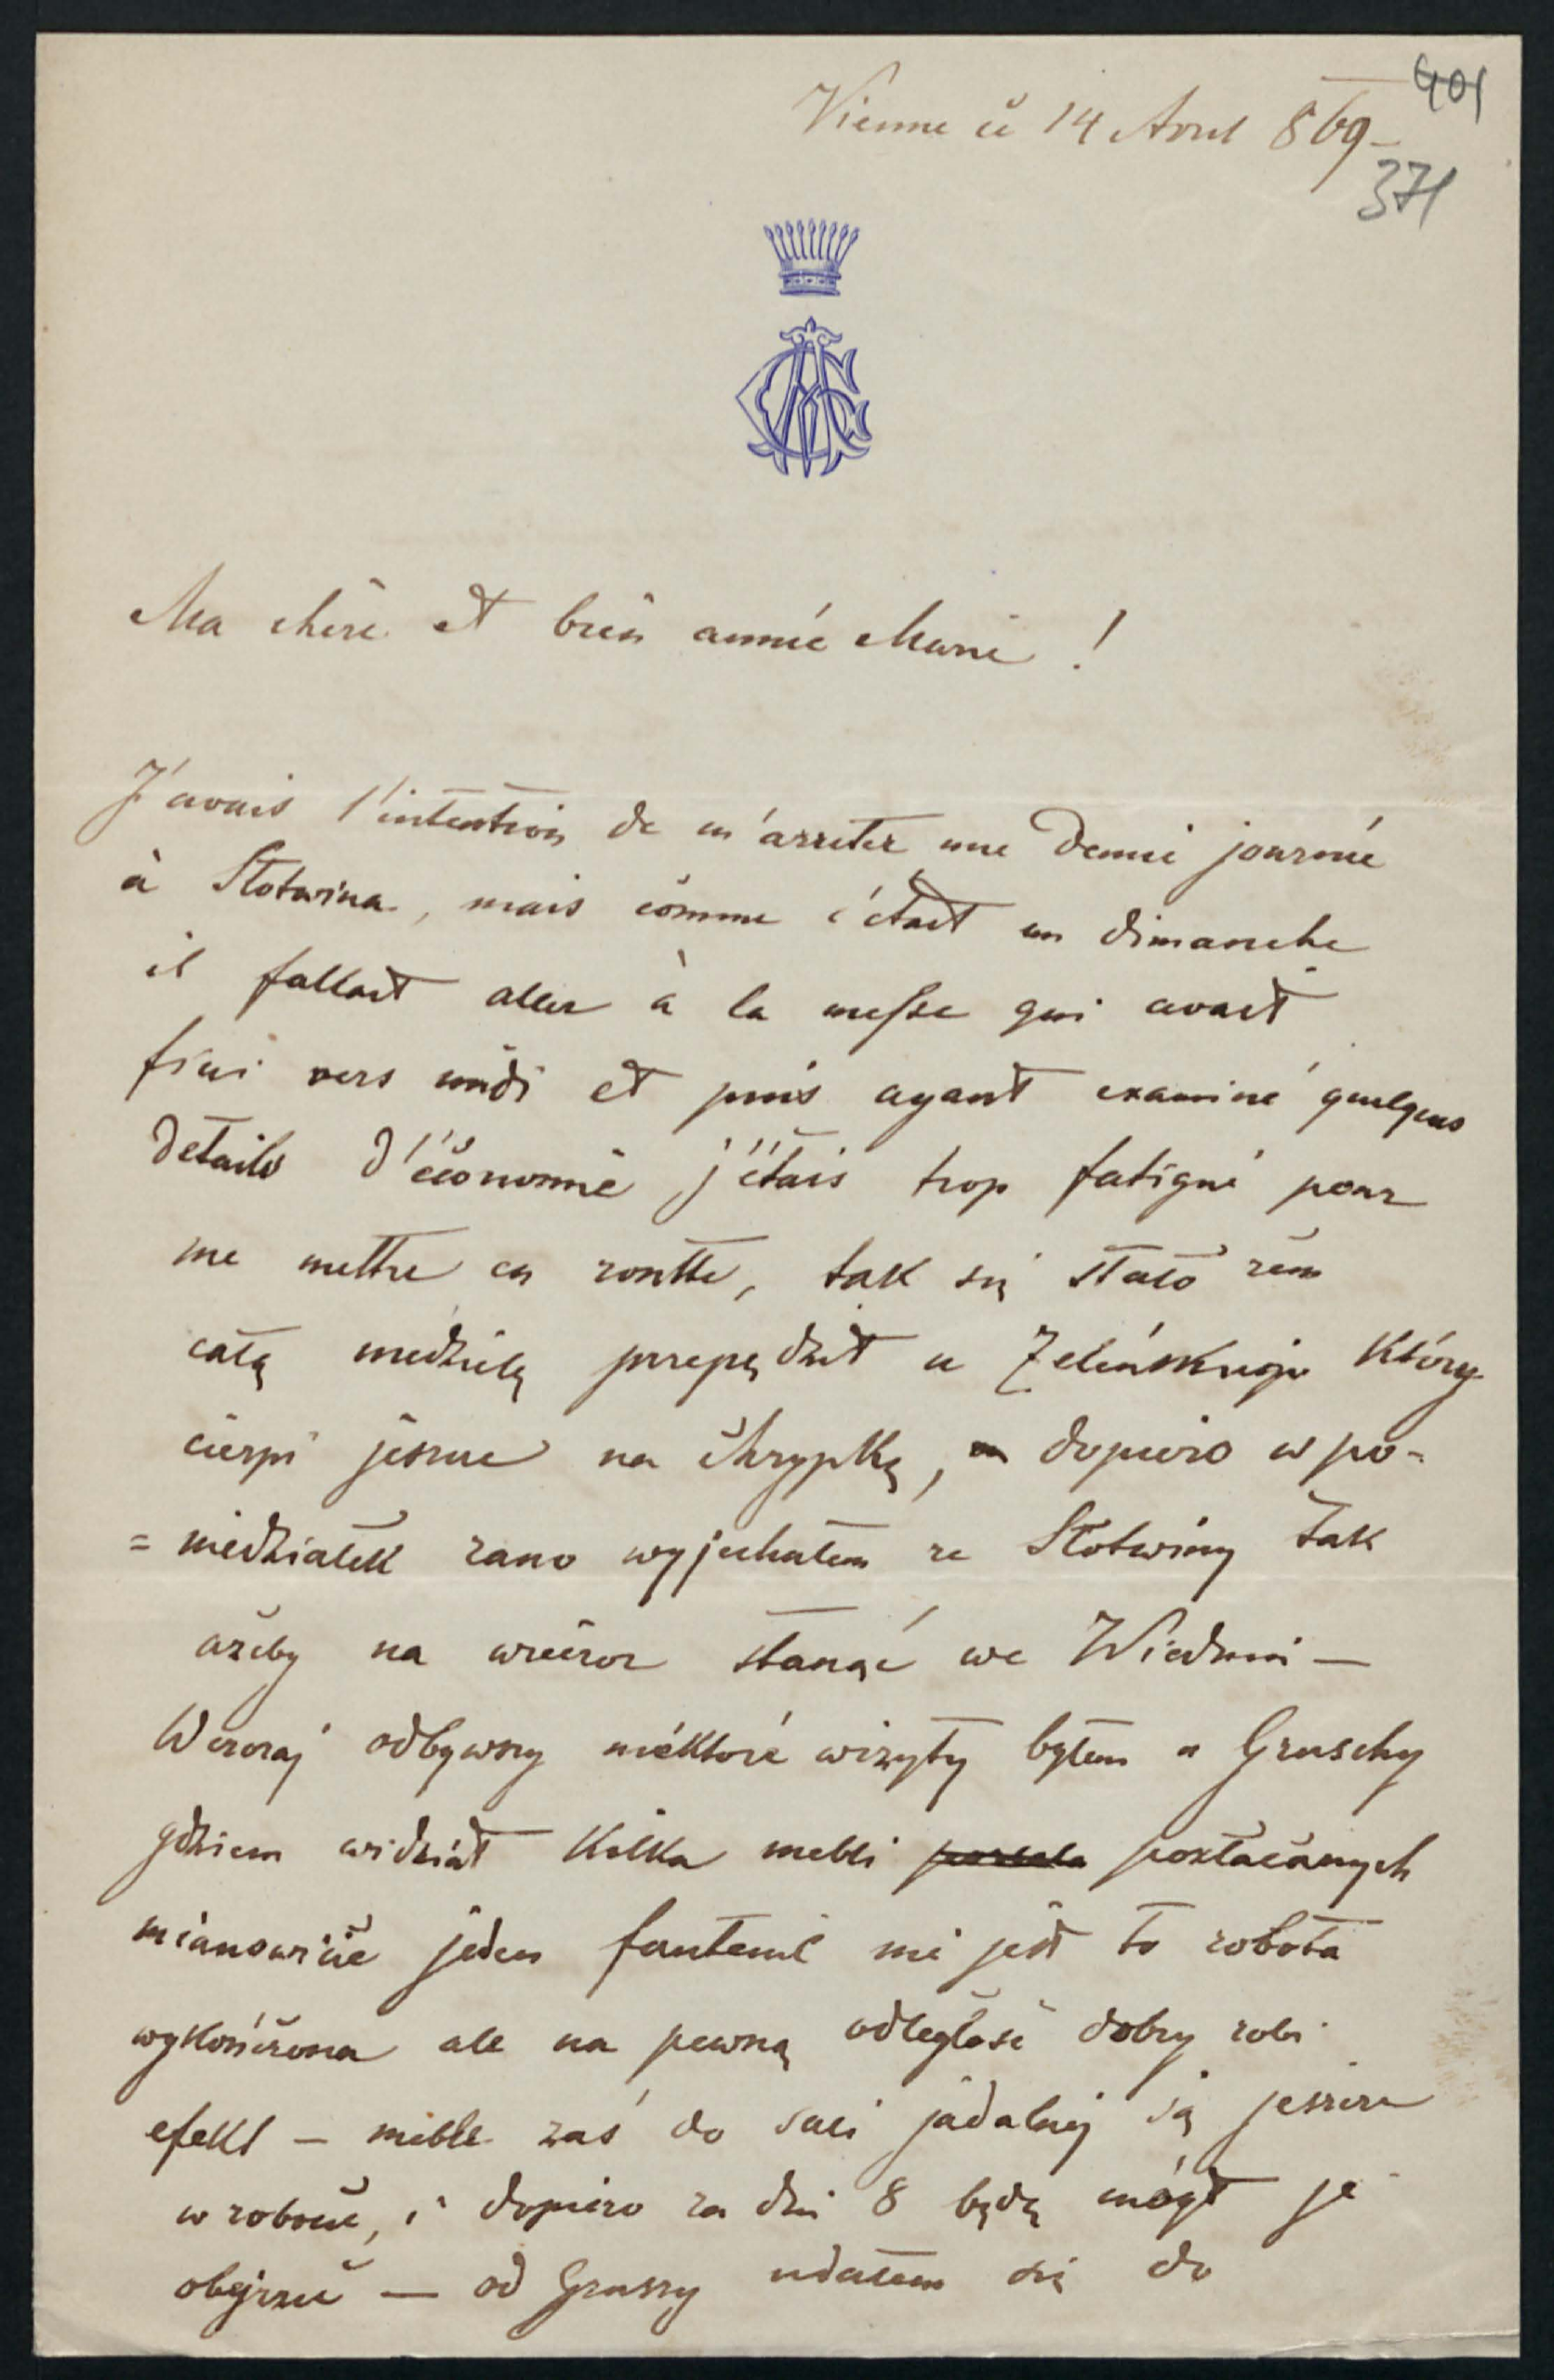 Vienne ce 14 Avril 869 –
401
371
Ma chère et bien aimée Marie !
J'avais l'intention de m'arreter une demie journée
à Słotwina, mais comme c'était un dimanche
il fallait aller à la messe qui avait
fini vers midi et puis ayant examiné quelques
details d'économie j'étais trop fatigué pour
me mettre en routte, tak się stało żem
całą niedzielę przepędził u Zeleńskiego który
cierpi jeszcze na chrypkę, dopiero w po-
=niedziałek rano wyjechałem ze Słotwiny tak
ażeby na wieczor stanąć we Wiedniu –
Wczoraj odbywszy niéktoré wizyty byłem u Gruschy
gdziem widział kilka mebli pozłacanych
mianowicie jeden fauteuil nie jest to robota
wykończona ale na pewną odległość dobry robi
efekt – meble zaś do sali jadalnej są jeszcze
w robocie, i dopiero za dni 8 będę mógł je
obejrzeć – od Gruszy udałem się do